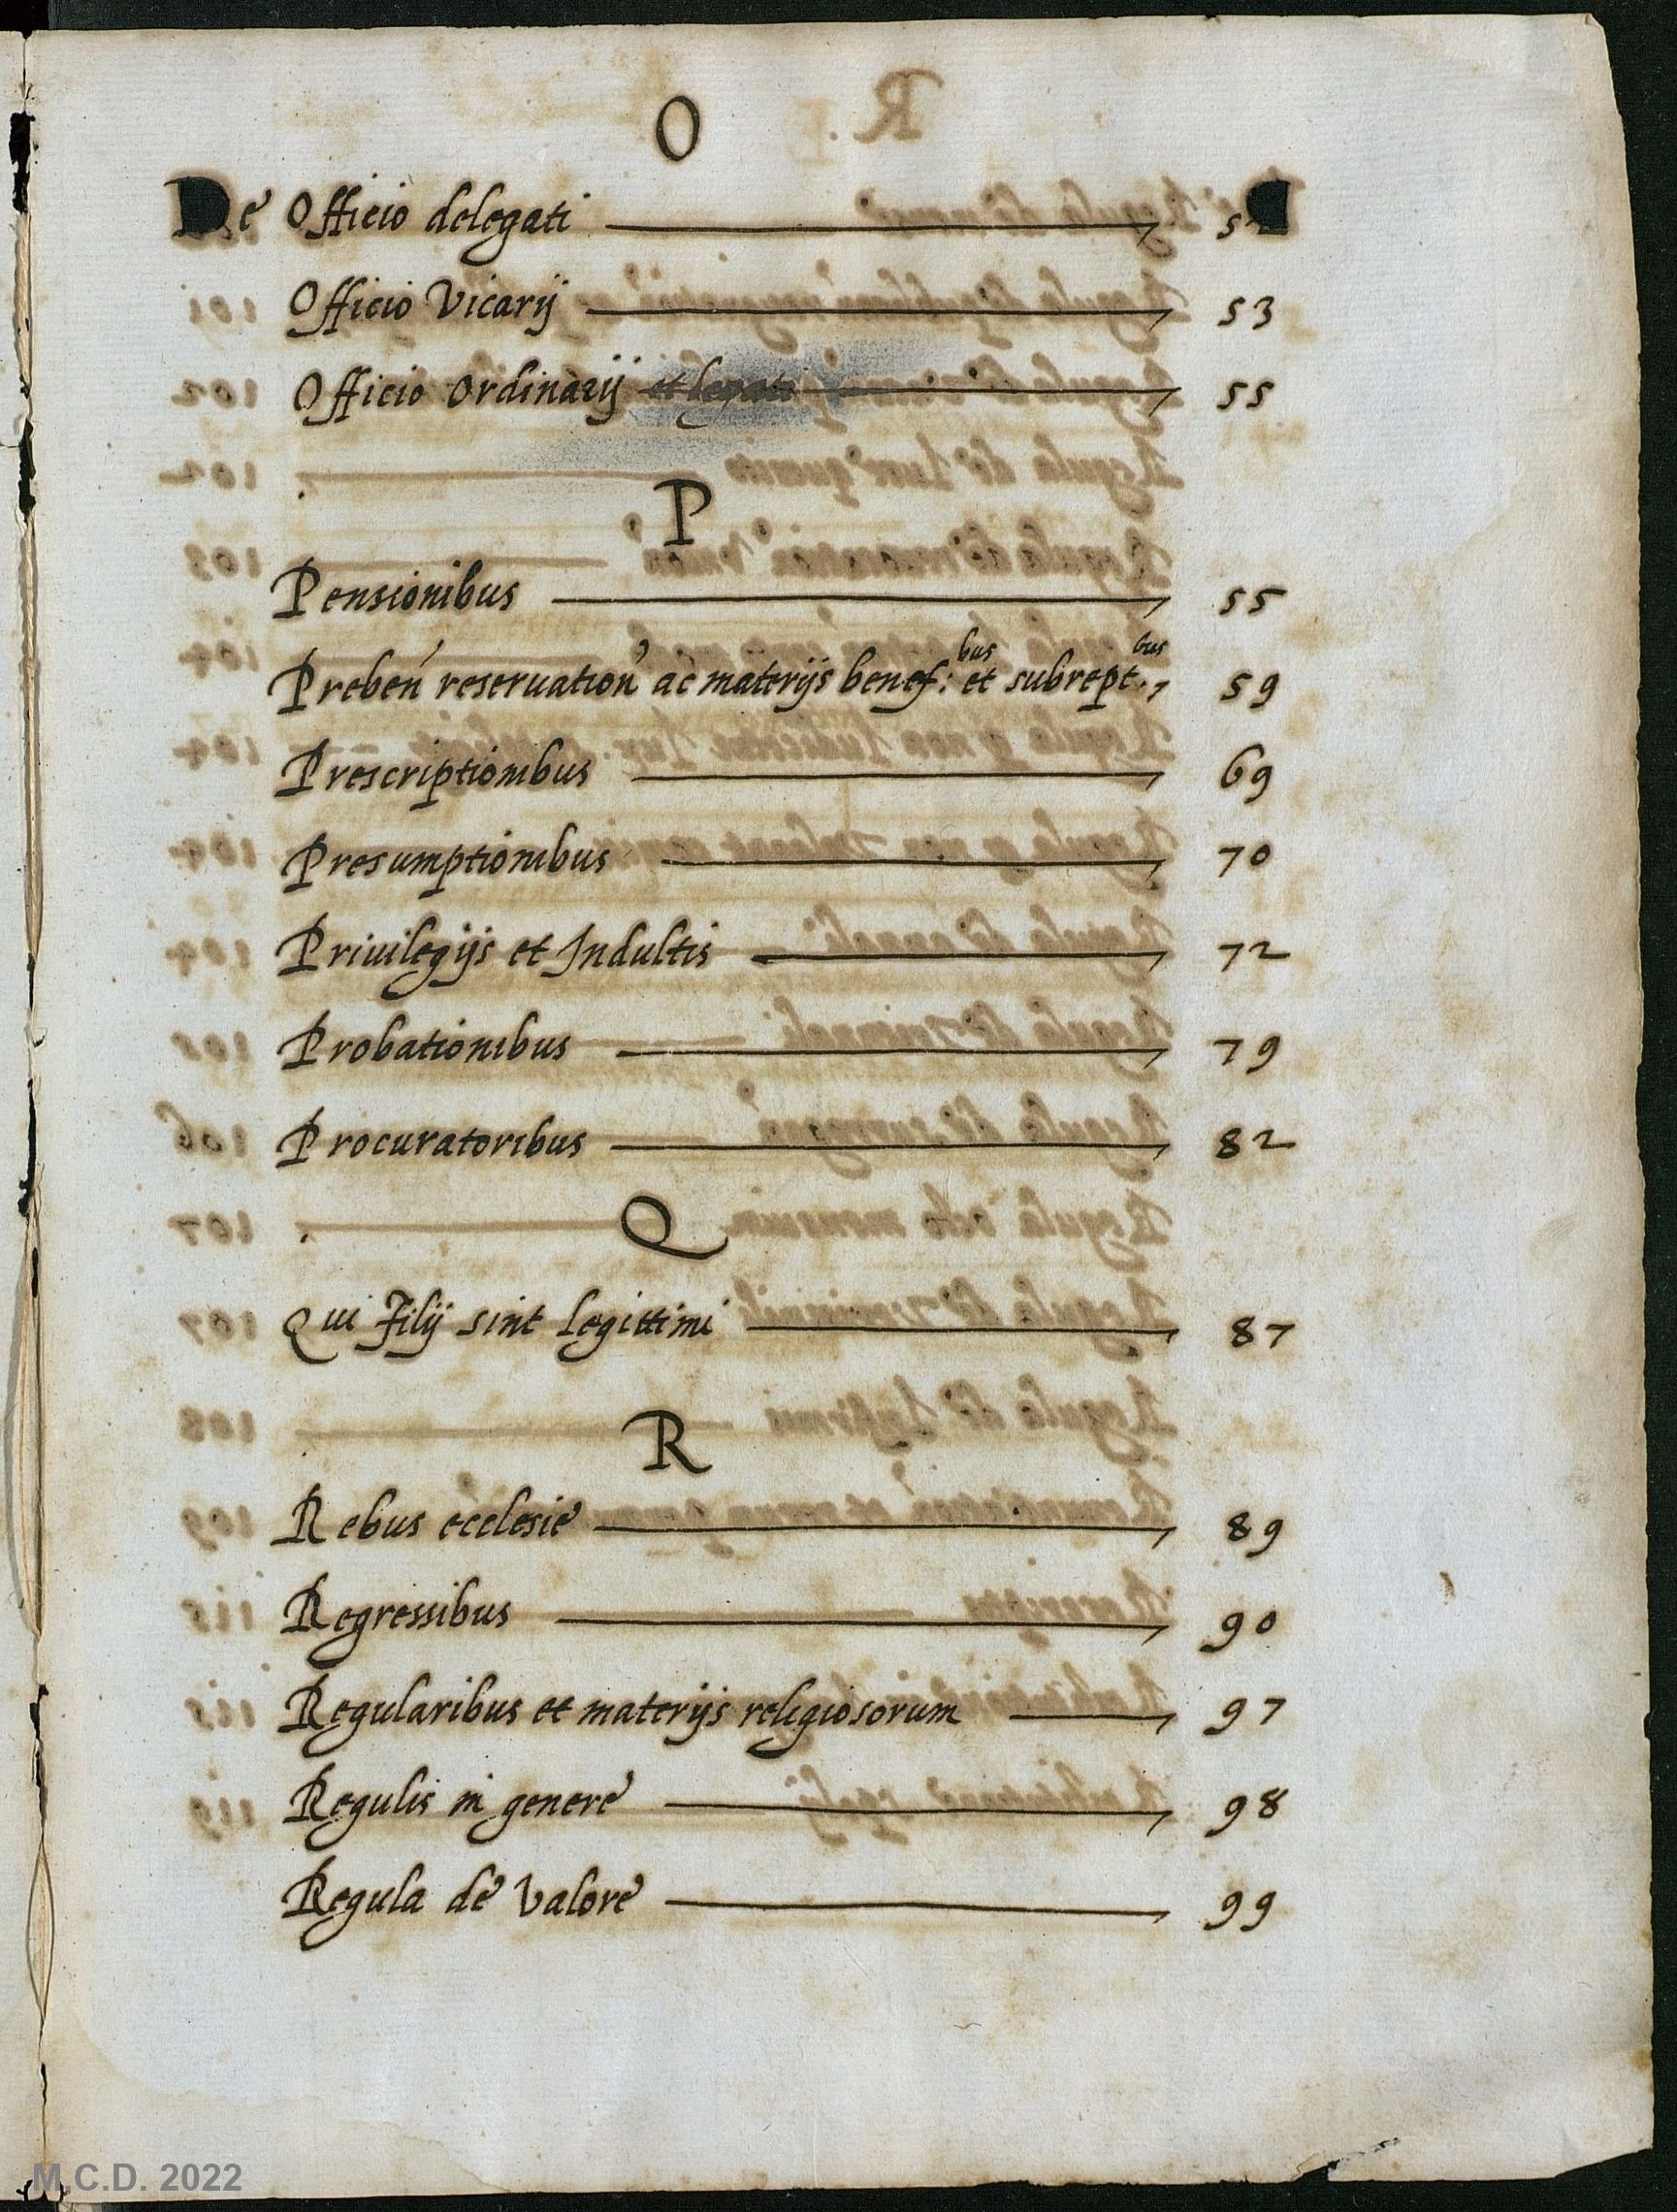 O
De Officio delegati
Officio Vicarij 53
Officio Ordinarij et legati 55
P
Pensionibus 55
Preben' reseruation' ac materijs benef:bus et subrept.bus 59
Prescriptionibus 69
Presumptionibus 70
Priuilegijs et Indultis 72
Probationibus 79
Procuratoribus 82
Q
Qui Filij sint legittimi 87
R
Rebus ecclesie 89
Regressibus 90
Regularibus et materijs religiosorum 97
Regulis in genere 98
Regula de Valore 99
M.C.D. 2022